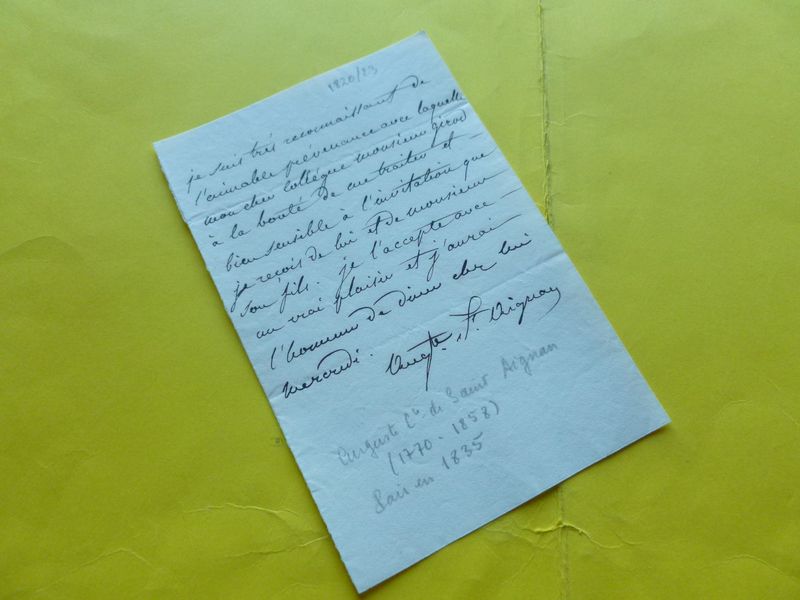 1820/23
je suis très reconnaissant de
l'aimable prévenance avec laquelle
mon cher collègue monsieur girod
à la bonté de me traiter et -
bien sensible à l'invitation que
je reçois de lui et de monsieur
son fils. je l'accepte avec -
un vrai plaisir et j'aurai
l'honneur de diner chez lui
mercredi.
Augte. St. Aignan
Auguste Cte de Saint Aignan
(1770 - 1858)
Pair en 1835